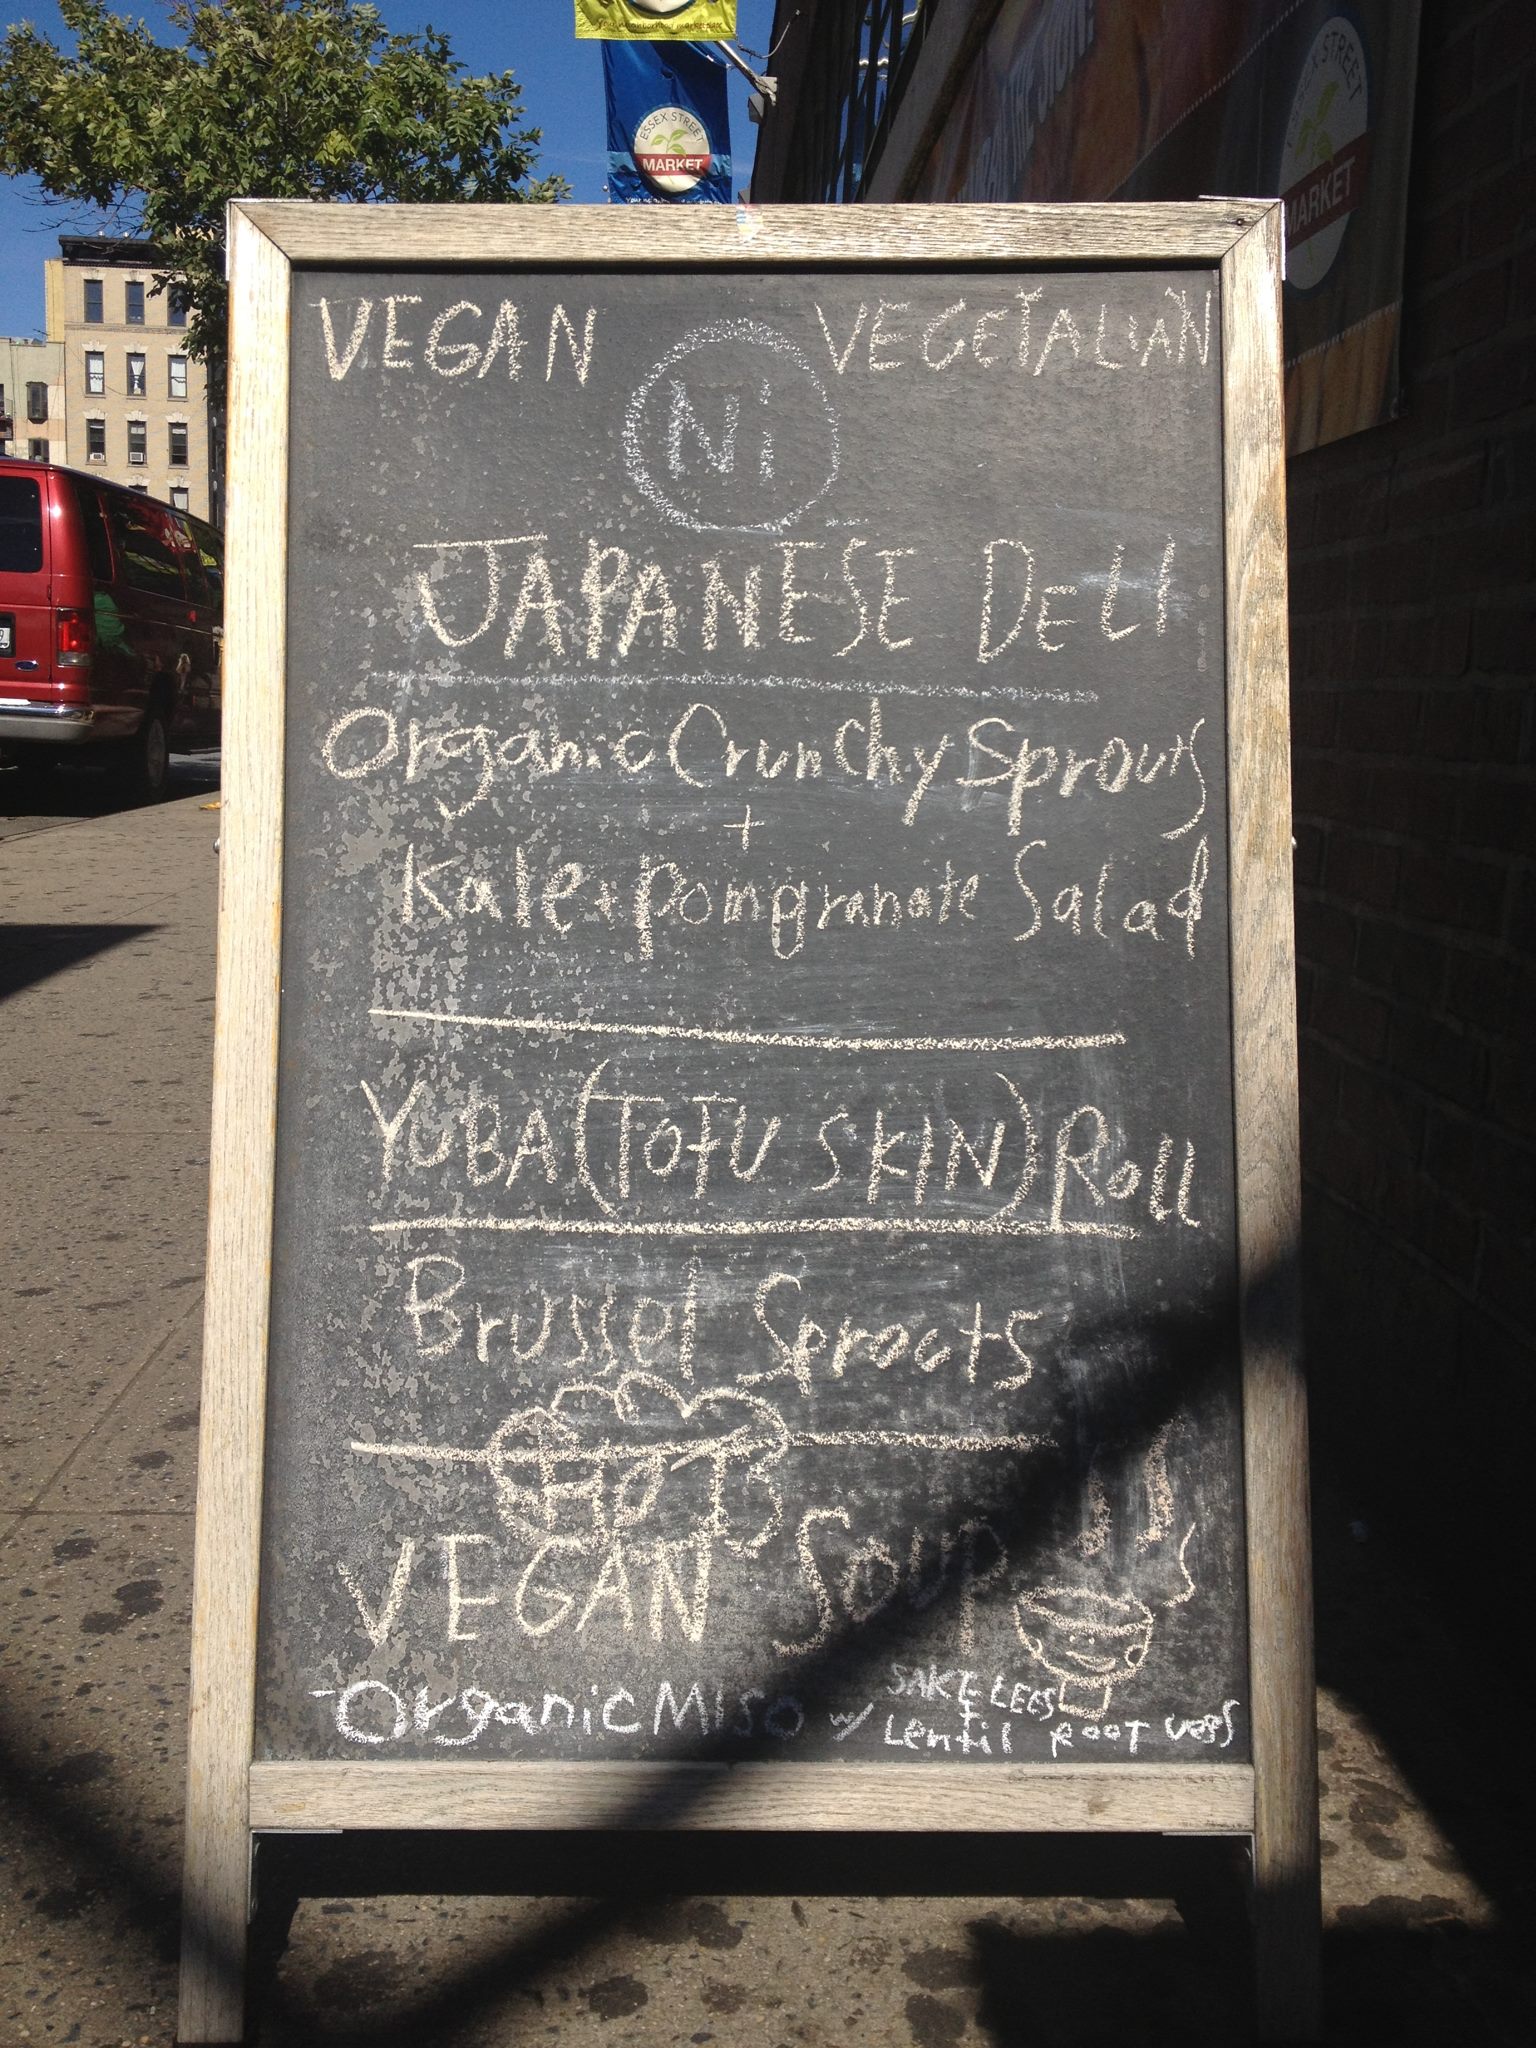 Your neighborhood marketplace
ESSEX STREET
MARKET
ESSEX STREET
MARKET
VEGAN VEGETALIAN
Ni
JAPANESE DELI
Organic Crunchy Sprouts
+
Kale + pomgranate Salad
YUBA (TOFU SKIN) Roll
Brussel Sprouts
HOT
VEGAN SOUP
-Organic MISO w/ SAKE LEES
+
Lentil ROOT VEGS